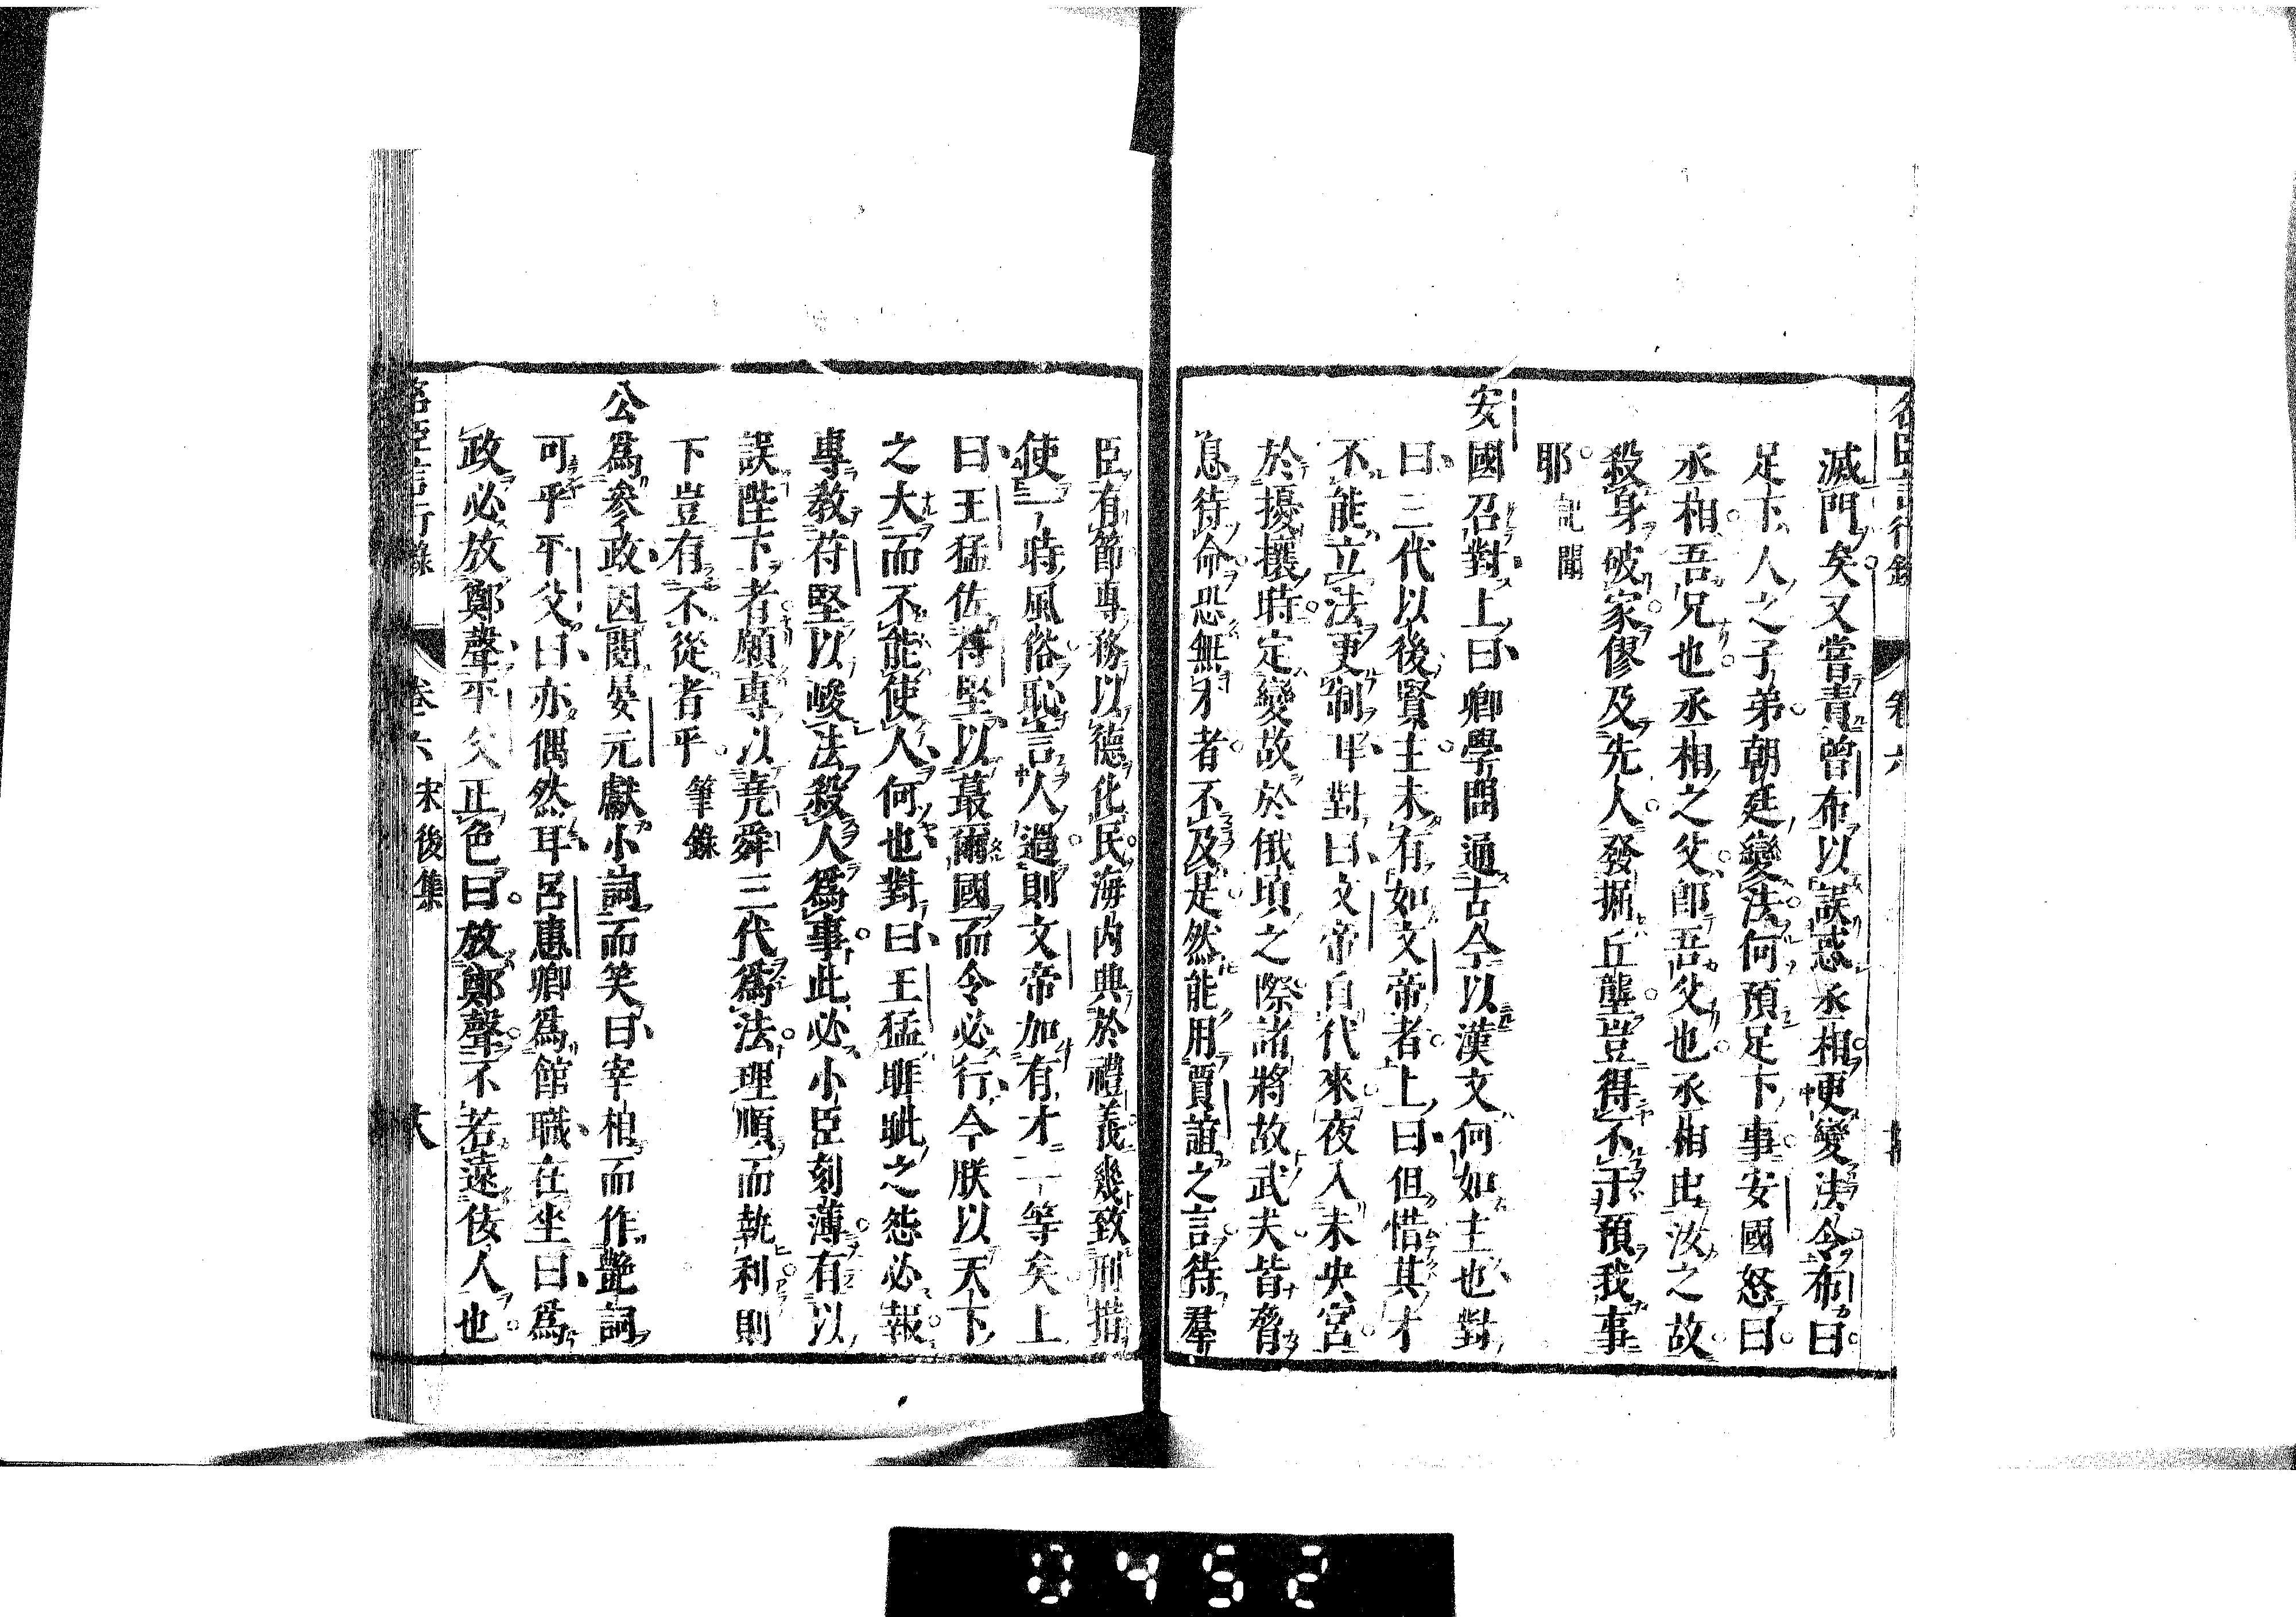 名臣言行錄 卷六
滅門矣又嘗責曾布以誤惑丞相更變法令布曰
足下人之子弟朝廷變法何預足下事安國怒曰
丞相吾兄也丞相之父卽吾父也丞相由汝之故
殺身破家僇及先人發掘丘壟豈得不干預我事
耶 記聞
安國召對上曰卿學問通古今以漢文何如主也對
曰三代以後賢主未有如文帝者上曰但惜其才
不能立法更制耳對曰文帝自代來夜入未央宮
於擾攘時定變故於俄頃之際諸將故武夫皆脅
息待命恐無才者不及是然能用賈誼之言待羣
臣有節專務以德化民海內興於禮義幾致刑措
使一時風俗恥言人過則文帝加有才一等矣上
曰王猛佐苻堅以蕞爾國而令必行今朕以天下
之大而不能使人何也對曰王猛睚眦之怨必報
專教苻堅以峻法殺人爲事此必小臣刻薄有以
誤陛下者願專以堯舜三代爲法理順而執利則
下豈有不從者乎 筆錄
公爲參政因閱晏元獻小詞而笑曰宰相而作艷詞
可乎平父曰亦偶然耳呂惠卿爲館職在坐曰爲
政必放鄭聲平父正色曰放鄭聲不若遠佞人也
名臣言行錄 卷六 宋後集
0452